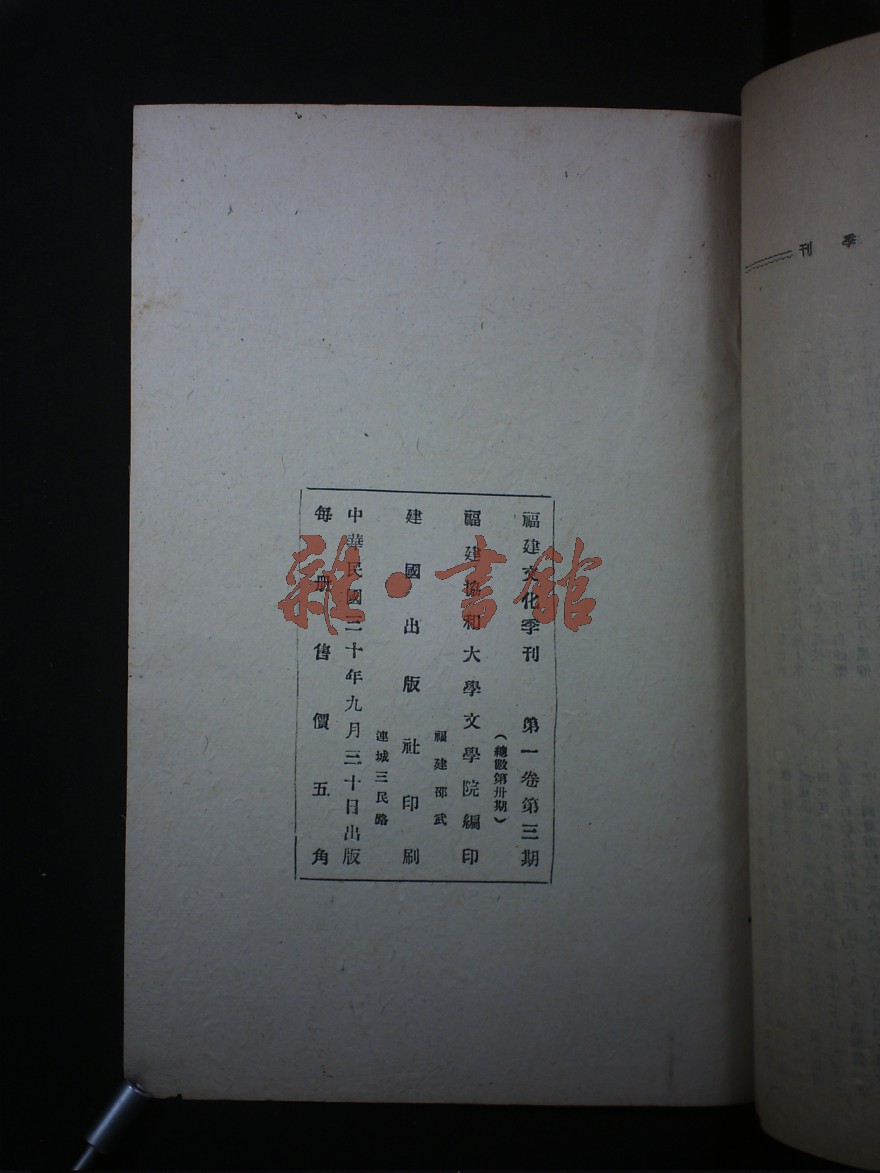 福建文化季刊 第一卷第三期
（總數第卅期）
福建協和大學文學院編印
福建邵武
建國出版社印刷
連城三民路
中華民國三十年九月三十日出版
每册售價五角
雜·書館
季刊